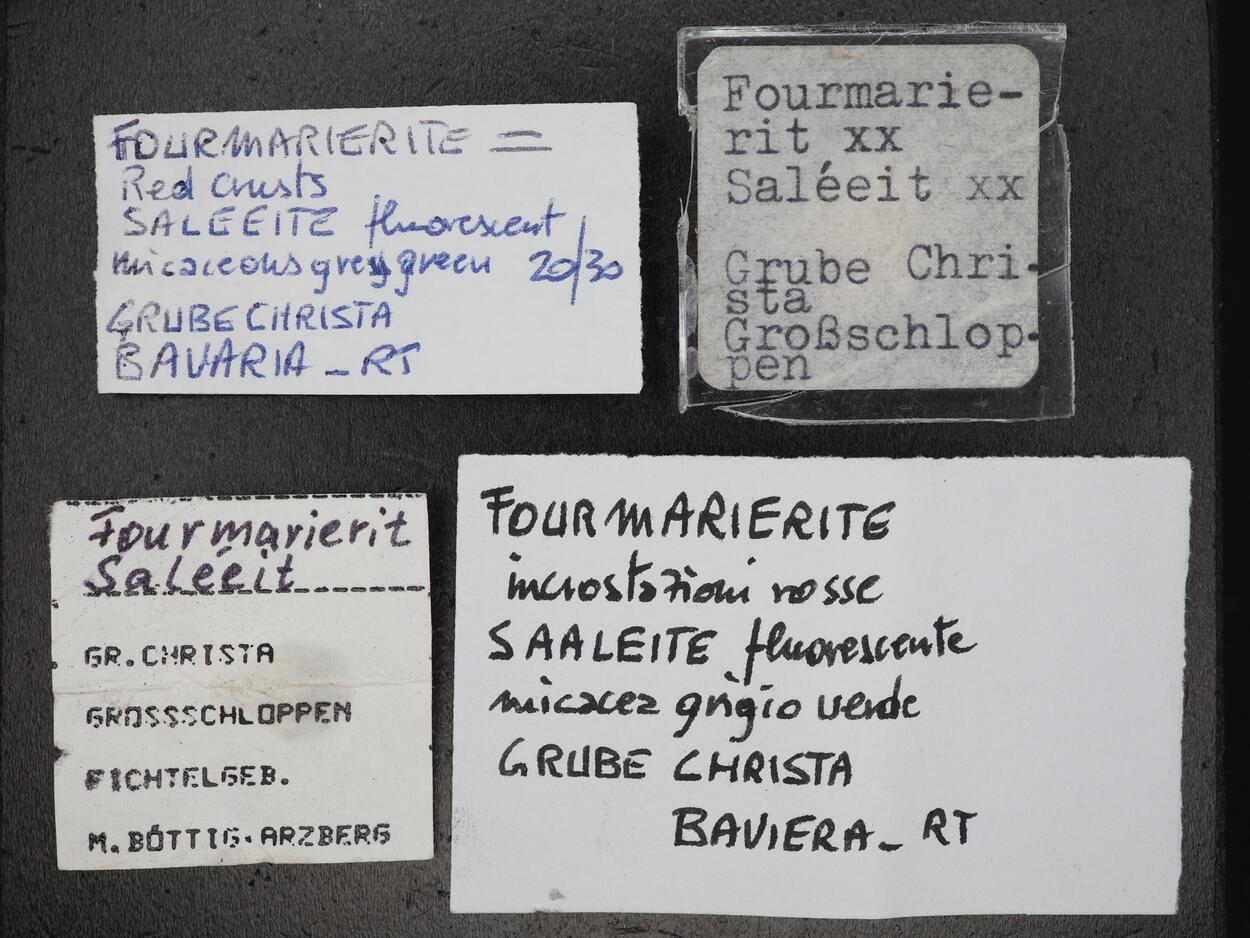 FOURMARIERITE =
Red crusts
SALEEITE fluorescent
micaceous grey green 20/30
GRUBE CHRISTA
BAVARIA - RT
Fourmarie-
rit xx
Saléeit xx
Grube Chri-
sta
Großschlop-
pen
Fourmarierit
Saléeit
GR.CHRISTA
GROSSSCHLOPPEN
FICHTELGEB.
M.BÖTTIG.ARZBERG
FOURMARIERITE
incrostazioni rosse
SAALEITE fluorescente
micacea grigio verde
GRUBE CHRISTA
BAVIERA - RT